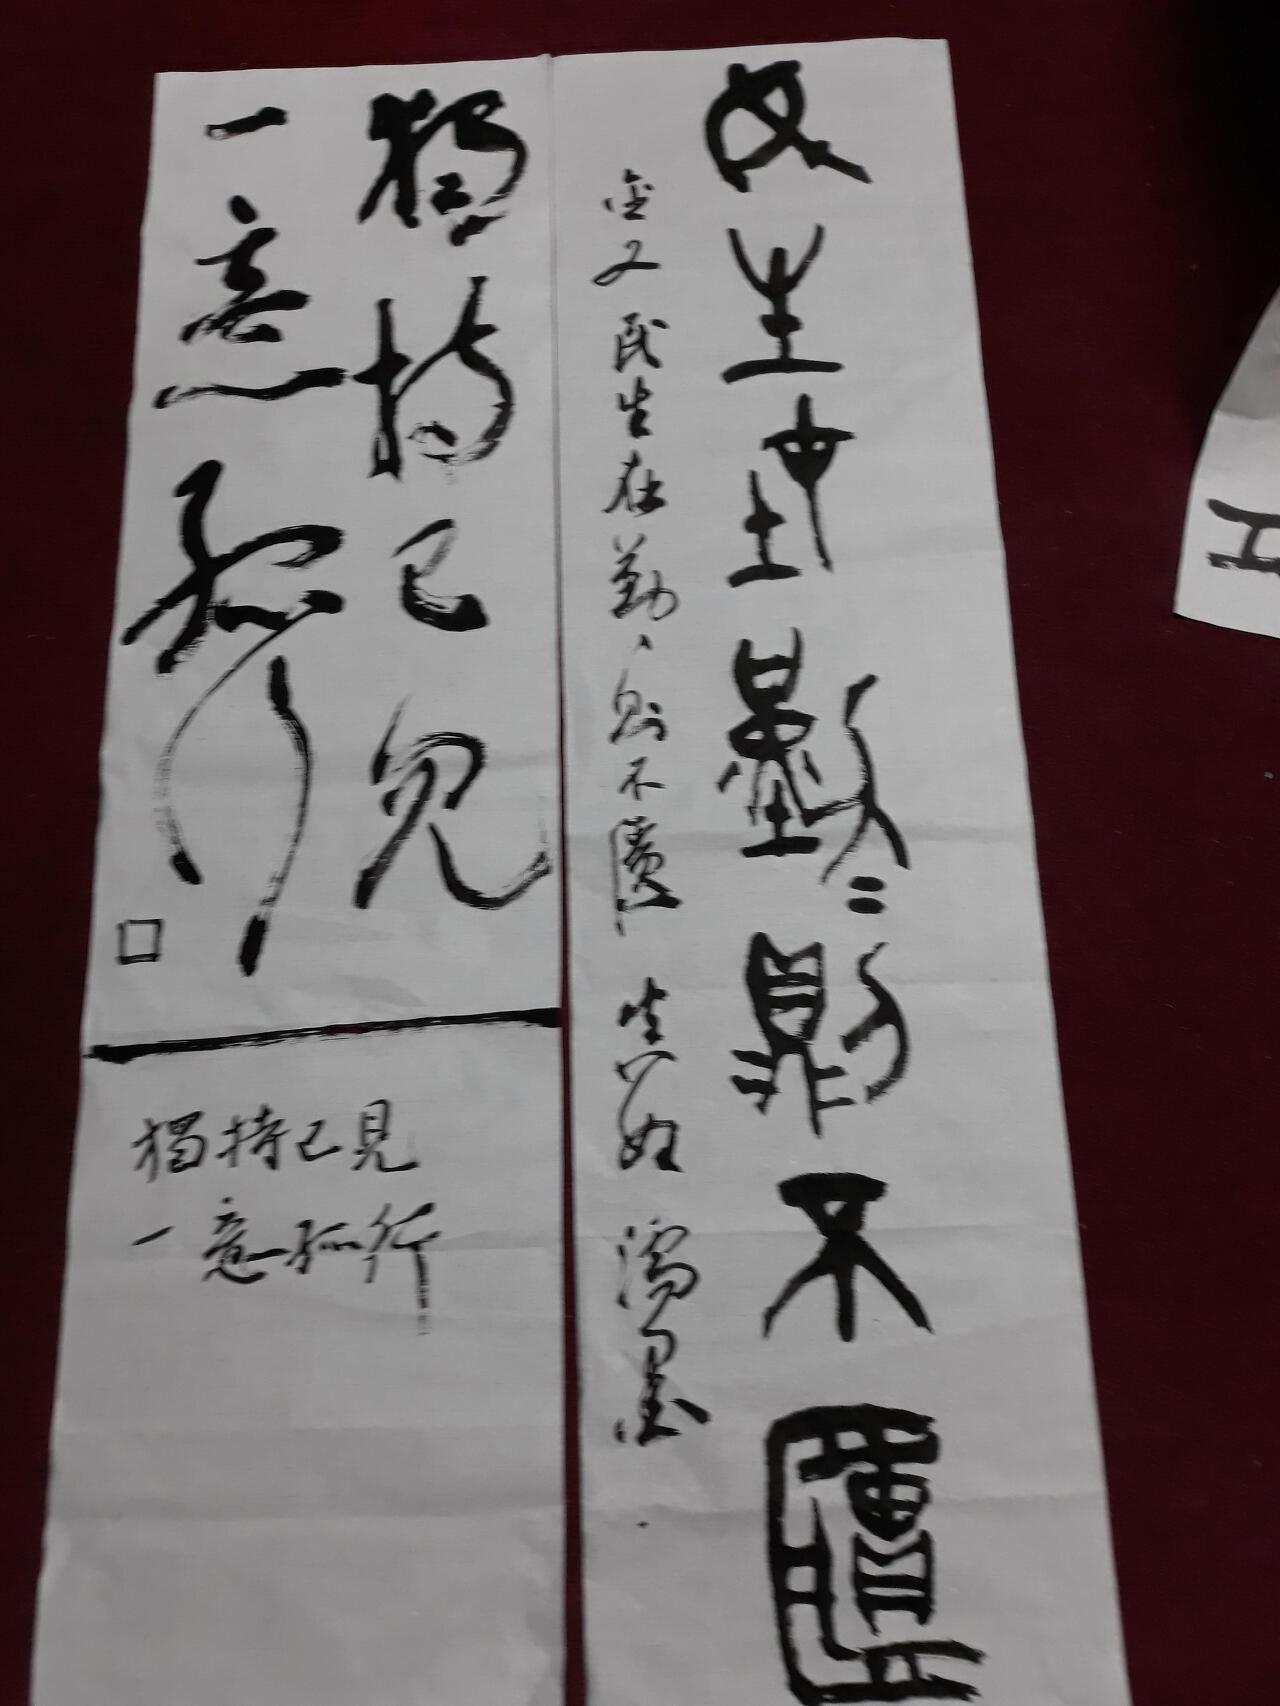 民生在勤=則不匱
金文民生在勤、則不匱
濡墨
獨持己見
一意孤行
獨持己見
一意孤行